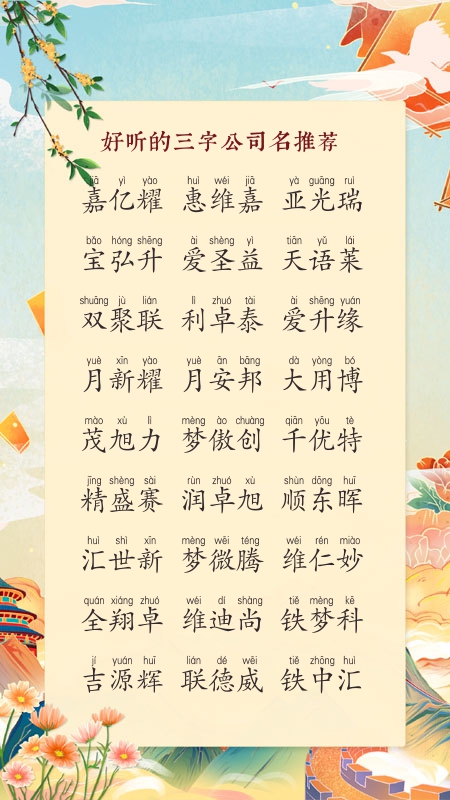 好听的三字公司名推荐
jiā yì yào huì wéi jiā yà guāng ruì
嘉亿耀 惠维嘉 亚光瑞
bǎo hóng shēng ài shèng yì tiān yǔ lái
宝弘升 爱圣益 天语莱
shuāng jù lián lì zhuó tài ài shēng yuán
双聚联 利卓泰 爱升缘
yuè xīn yào yuè ān bāng dà yòng bó
月新耀 月安邦 大用博
mào xù lì mèng ào chuàng qiān yōu tè
茂旭力 梦傲创 千优特
jīng shèng sài rùn zhuó xù shùn dōng huī
精盛赛 润卓旭 顺东晖
huì shì xīn mèng wēi téng wéi rén miào
汇世新 梦微腾 维仁妙
quán xiáng zhuó wéi dí shàng tiě mèng kē
全翔卓 维迪尚 铁梦科
jí yuán huī lián dé wēi tiě zhōng huì
吉源辉 联德威 铁中汇